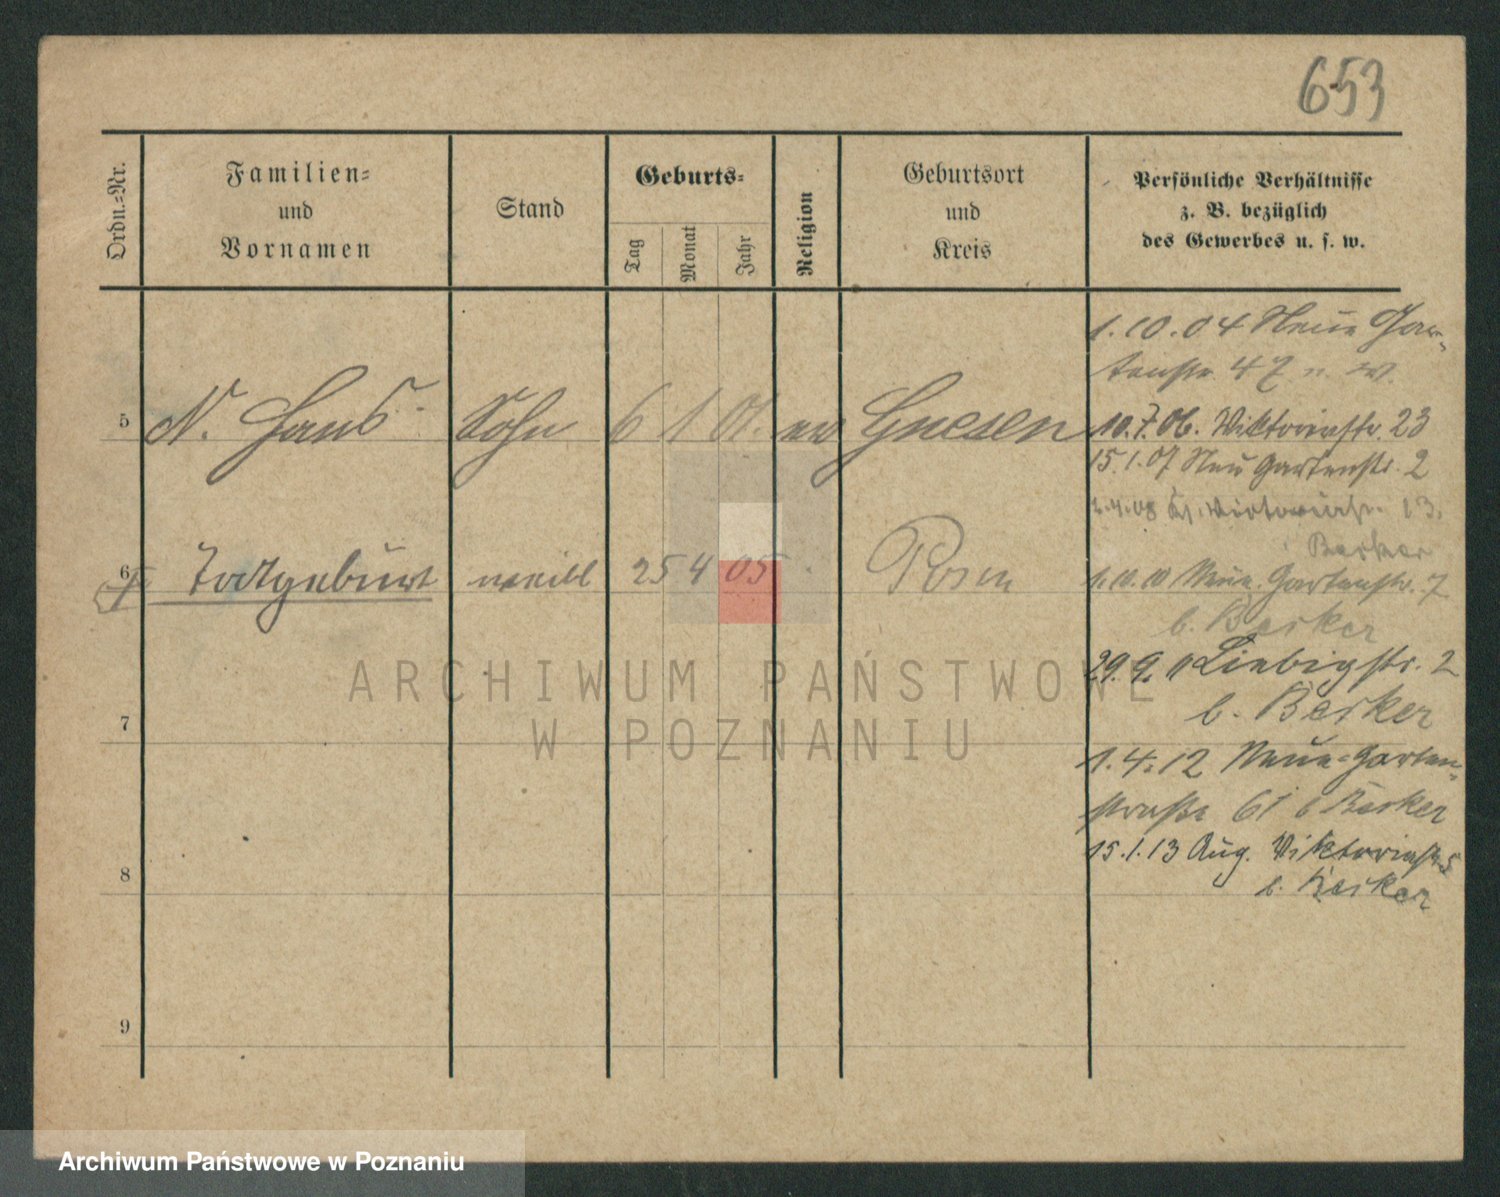 653
Ordn.-Nr.
Familien-
und
Vornamen
Stand
Geburts-
Tag
Monat
Jahr
Religion
Geburtsort
und
Kreis
Persönliche Verhältnisse
z. B. bezüglich
des Gewerbes u. s. w.
1.10.04 Neue Gar-
tenstr. 47 n. W.
5 N. Hans Sohn 6 1 01. ev Gnesen
10.7.06. Viktoriastr. 23
15.1.07 Neu Gartenstr. 2
Viktoriastr. 13.
Becker
6 Todtgeburt weibl 25 4 05 Posen
1.10.10 Neue Gartenstr. 7
b. Becker
29.9.11 Liebigstr. 2
b. Becker
7
1.4.12 Neue-Garten-
straße 61 b Becker
15.1.13 Aug. Viktoriastr 5
b. Becker
8
9
ARCHIWUM PAŃSTWOWE
W POZNANIU
Archiwum Państwowe w Poznaniu